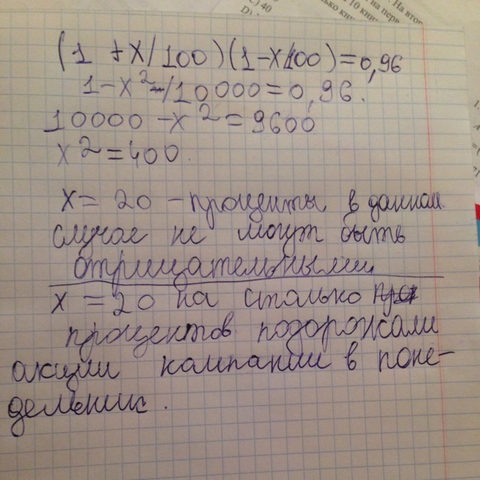 C) 40
(1 + x/100)(1-x/100)=0,96
1-x²/10000=0,96.
10000-x²=9600
x²=400.
x=20 - проценты в данном
случае не могут быть
отрицательными
x=20 на столько
процентов подорожали
акции компании в поне-
дельник.